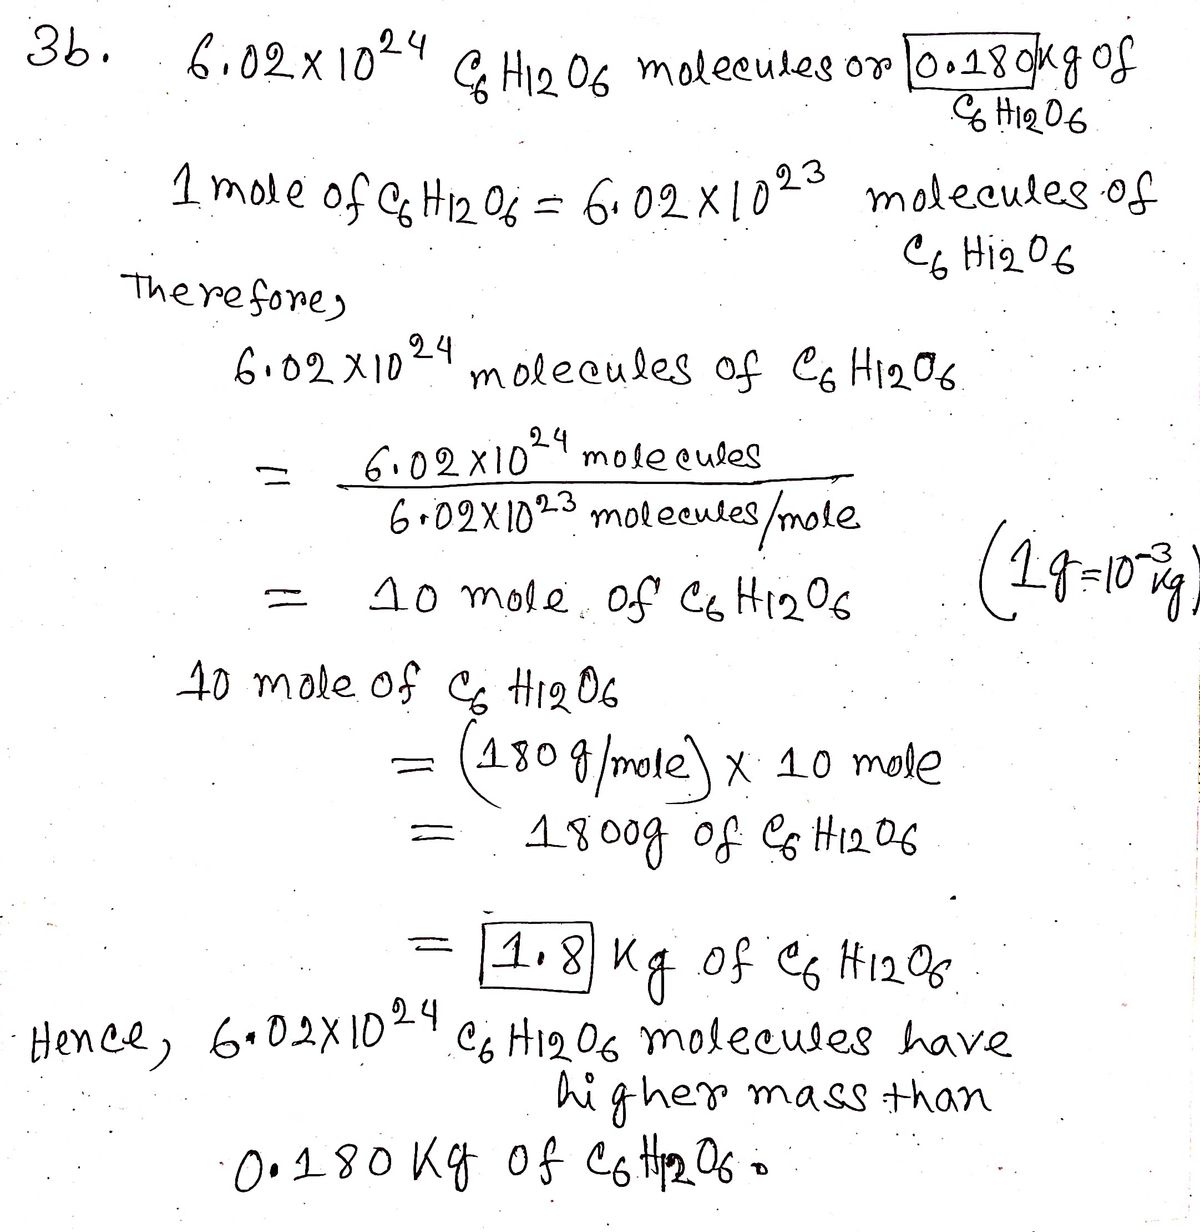 3b. 6.02×10²⁴ C₆H₁₂O₆ molecules or 0.180 kg of
C₆H₁₂O₆
1 mole of C₆H₁₂O₆ = 6.02×10²³ molecules of
C₆H₁₂O₆
Therefore,
6.02×10²⁴ molecules of C₆H₁₂O₆
= 6.02×10²⁴ molecules
6.02×10²³ molecules/mole
= 10 mole of C₆H₁₂O₆ (1g=10⁻³kg)
10 mole of C₆H₁₂O₆
= (180 g/mole) × 10 mole
= 1800g of C₆H₁₂O₆
= 1.8 Kg of C₆H₁₂O₆
Hence, 6.02×10²⁴ C₆H₁₂O₆ molecules have
higher mass than
0.180 Kg of C₆H₁₂O₆.